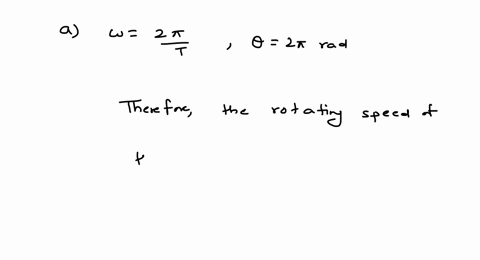 a) ω = 2π/T , θ = 2π rad
Therefore, the rotating speed of
t